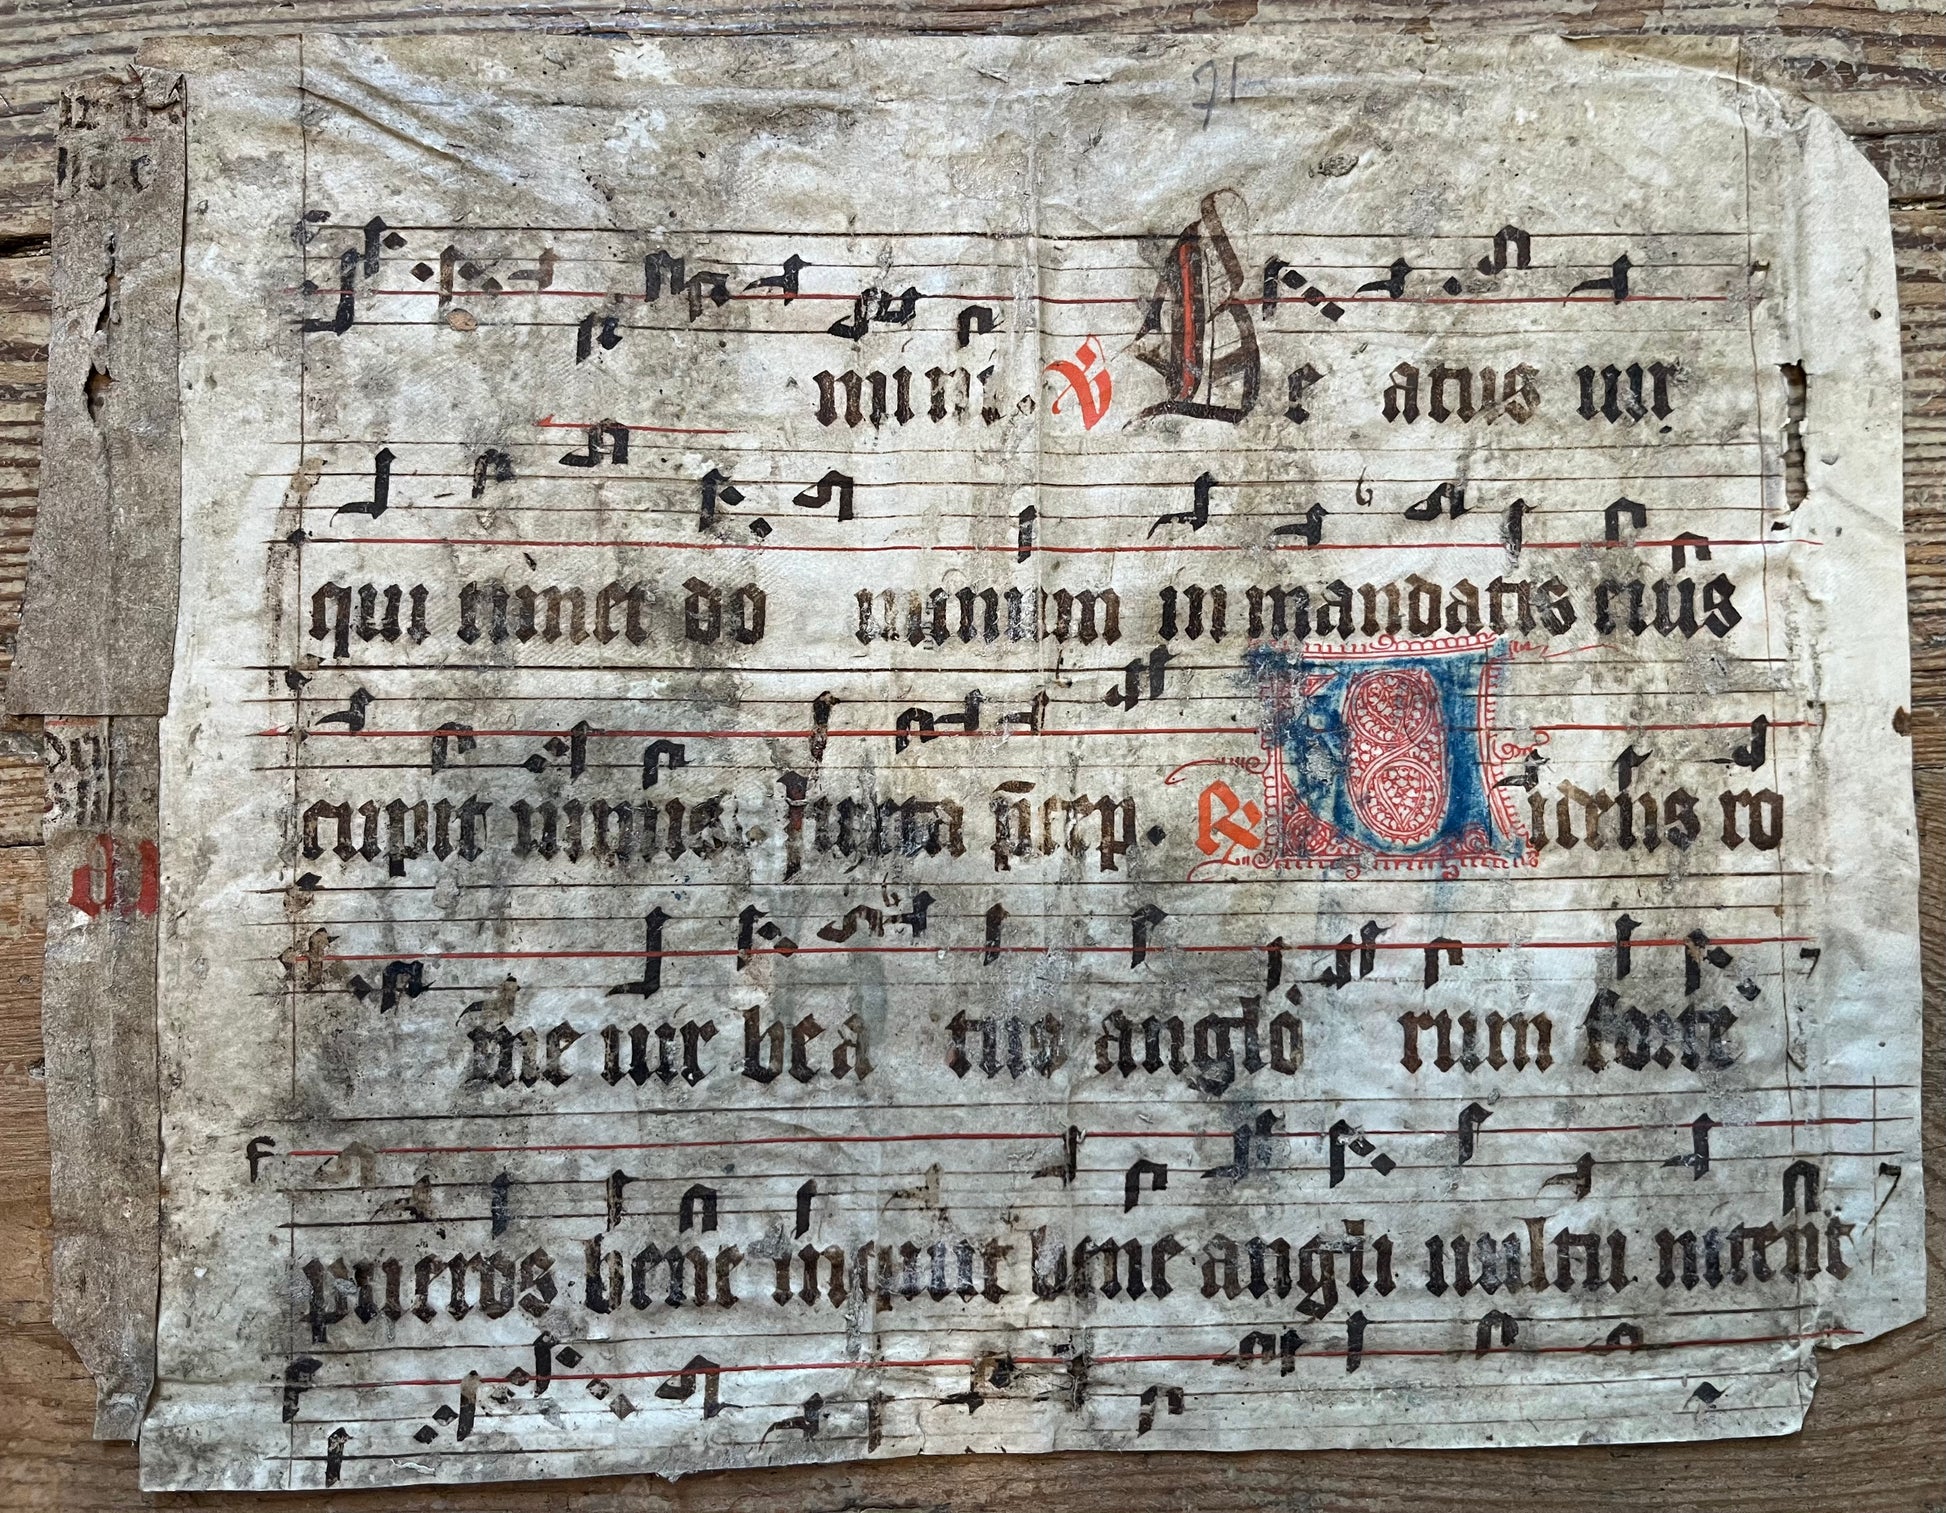 71
mini. ℣ Be atus uir
qui timet do minum in mandatis eius
cupit nimis. Iuxta p̄cep. ℟ Uidens ro
me uir bea tus anglo rum forte
pueros bene inquit bene angli uultu nitent